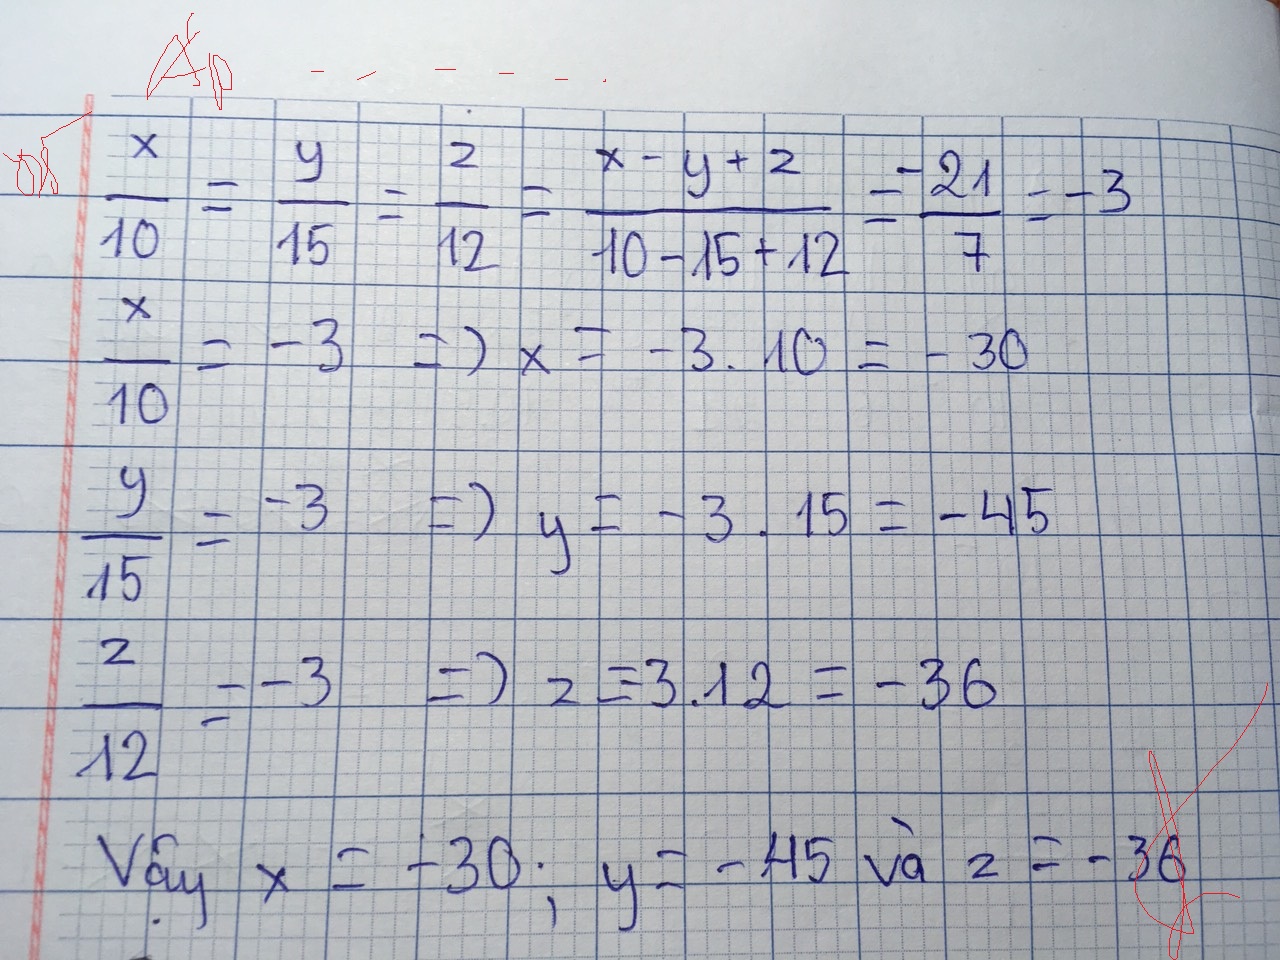 Áp - - - - - .
x/10 = y/15 = z/12 = x - y + z/10 - 15 + 12 = -21/7 = -3
x/10 = -3 => x = -3. 10 = - 30
y/15 = -3 => y = - 3 . 15 = - 45
z/12 = -3 => z =3.12 = - 36
Vậy x = -30 ; y = - 45 và z = - 36